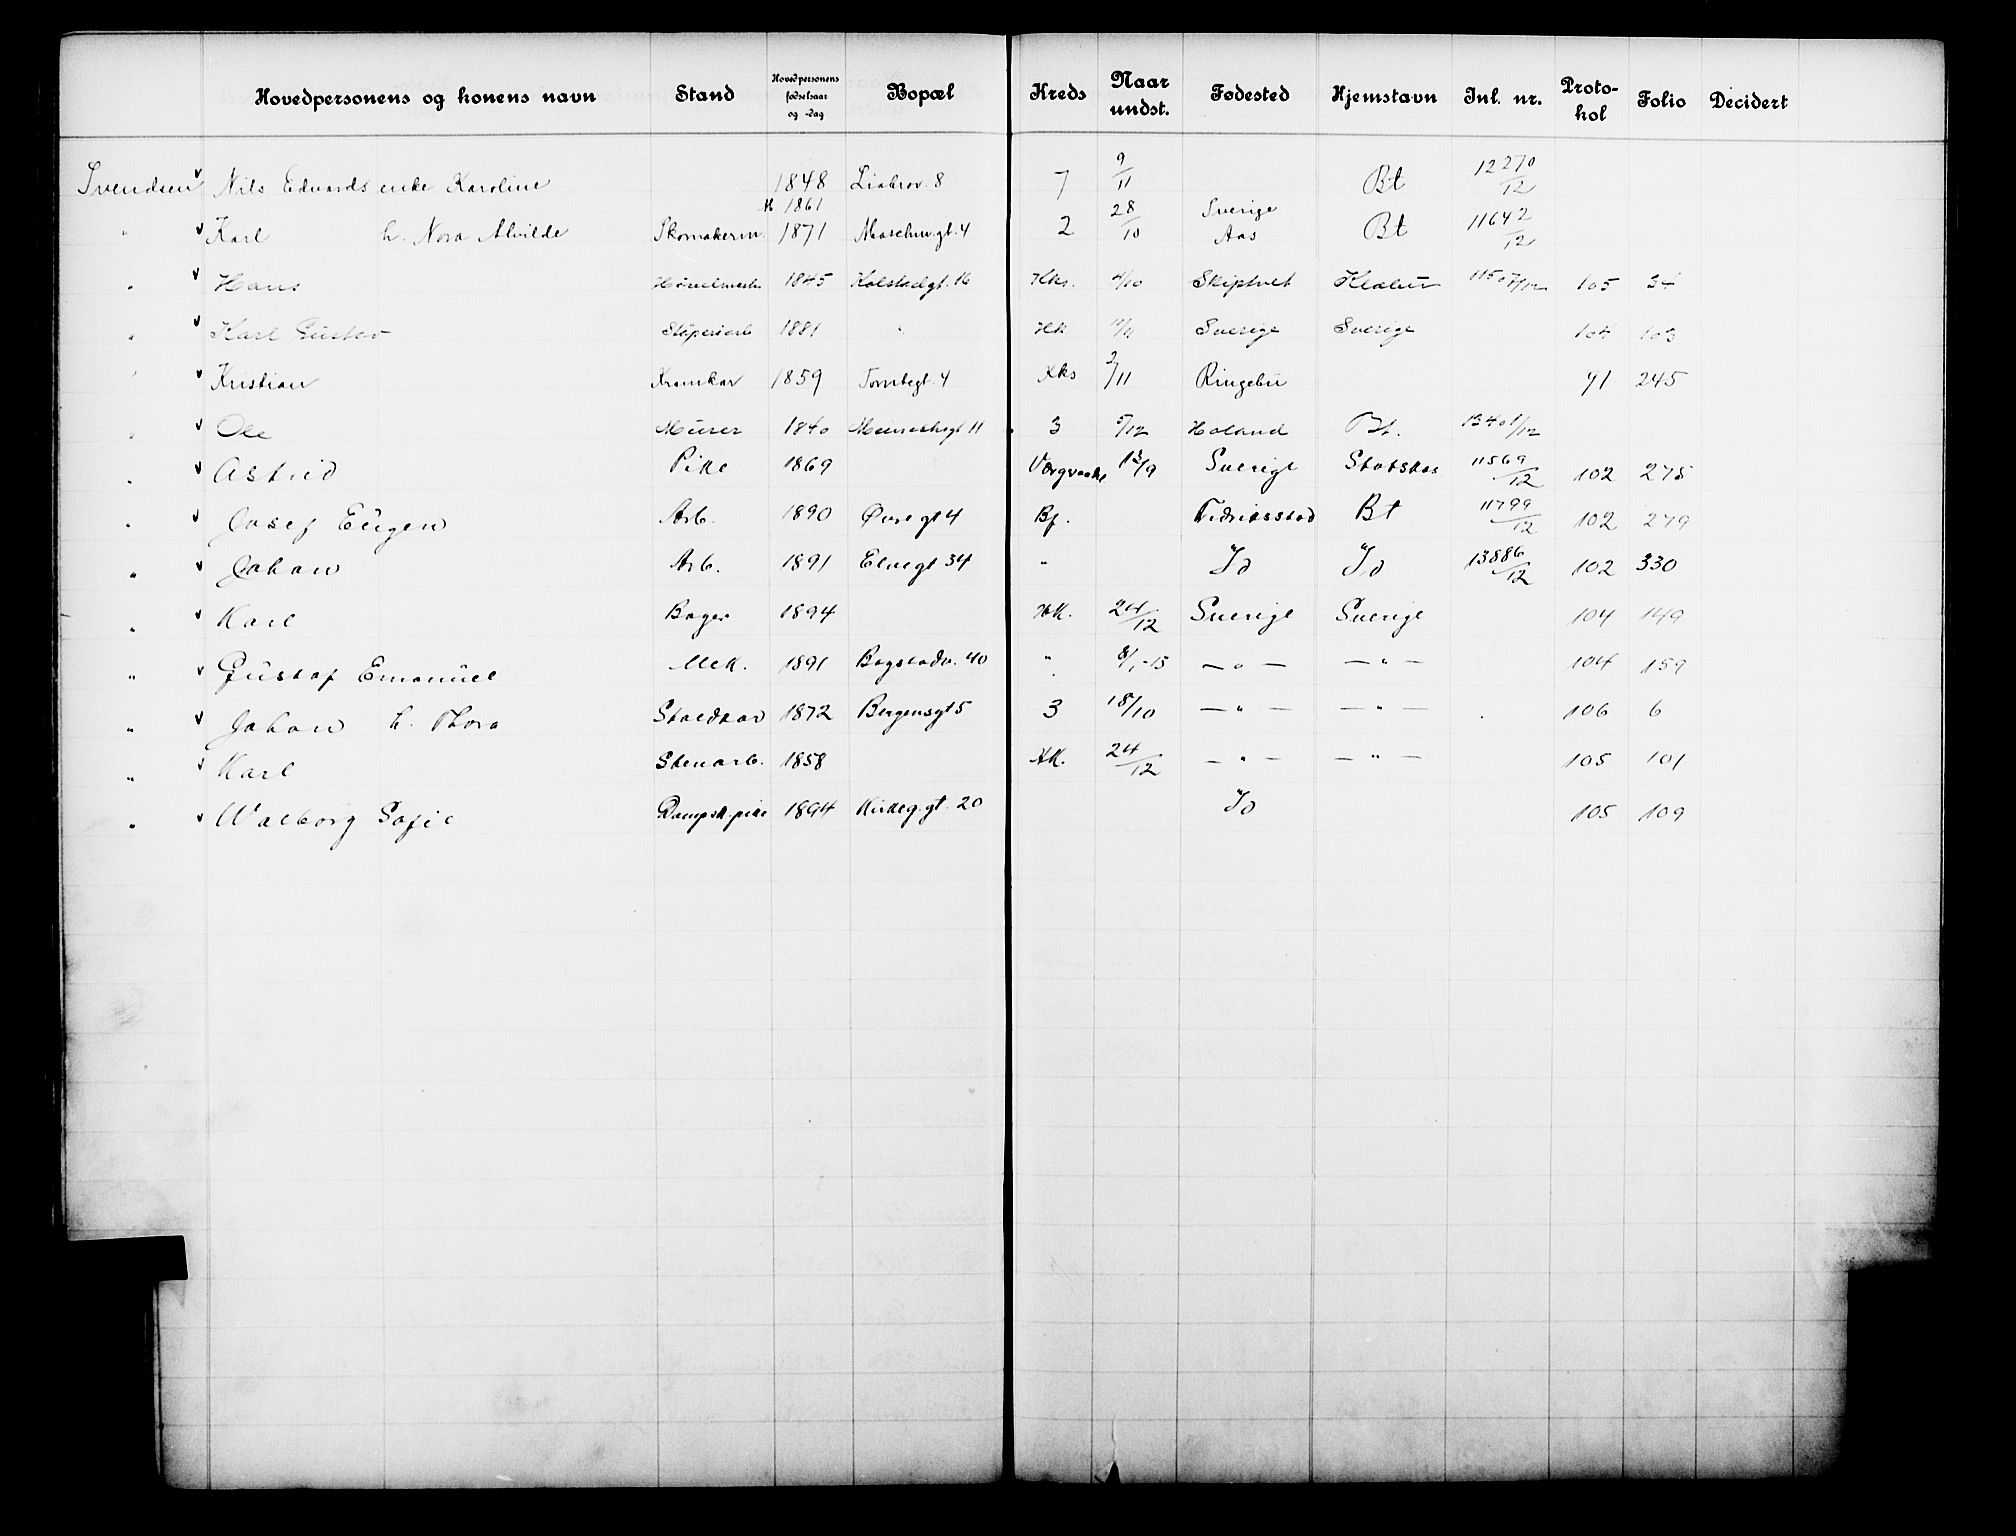 Hovedpersonens og konens navn Stand Hovedpersonens fødselsaar og -dag Bopæl Kreds Naar undst. Fødested Hjemstavn Inl. nr. Protokol Folio Decidert
Svendsen Nils Edvards enke Karoline 1848 8 7 9/11 Bt 12270/12
" Karl h. Nora Alvilde Skomakerm. 1861 1871 2 28/10 Sverige Aas Bt 11642/12
" Hans 1845 Kolstadgt. 16 Kks. 4/10 Skiptvet 11507/12 105 34
" Karl Gustav Støperiarb 1881 " Kk Sverige Sverige 104 103
" Kristian 1859 Tomtegt. 4 Kks 2/11 Ringebu 91 245
" Ole Murer 1840 11 3 5/12 Høland Bt. 13401/12
" Astrid Pike 1869 13/9 Sverige 11569/12 102 275
" Josef Eugen Arb. 1890 Øvregt 4 Bf. Bt 11799/12 102 279
" Johan Arb. 1891 Elvegt 34 " Id Id 13886/12 102 330
" Karl Bager 1894 24/12 Sverige Sverige 104 149
" Gustaf Emanuel Mek. 1891 Bogstadv. 40 " 8/1-15 — " — — " — 104 159
" Johan h. Thora 1872 Bergensgt 5 3 18/10 — " — — " — 106 6
" Karl Stenarb. 1858 24/12 — " — — " — 105 101
" Walborg Sofie Dampsk.pike 1894 Kirkeg.gt. 20 Id 105 109